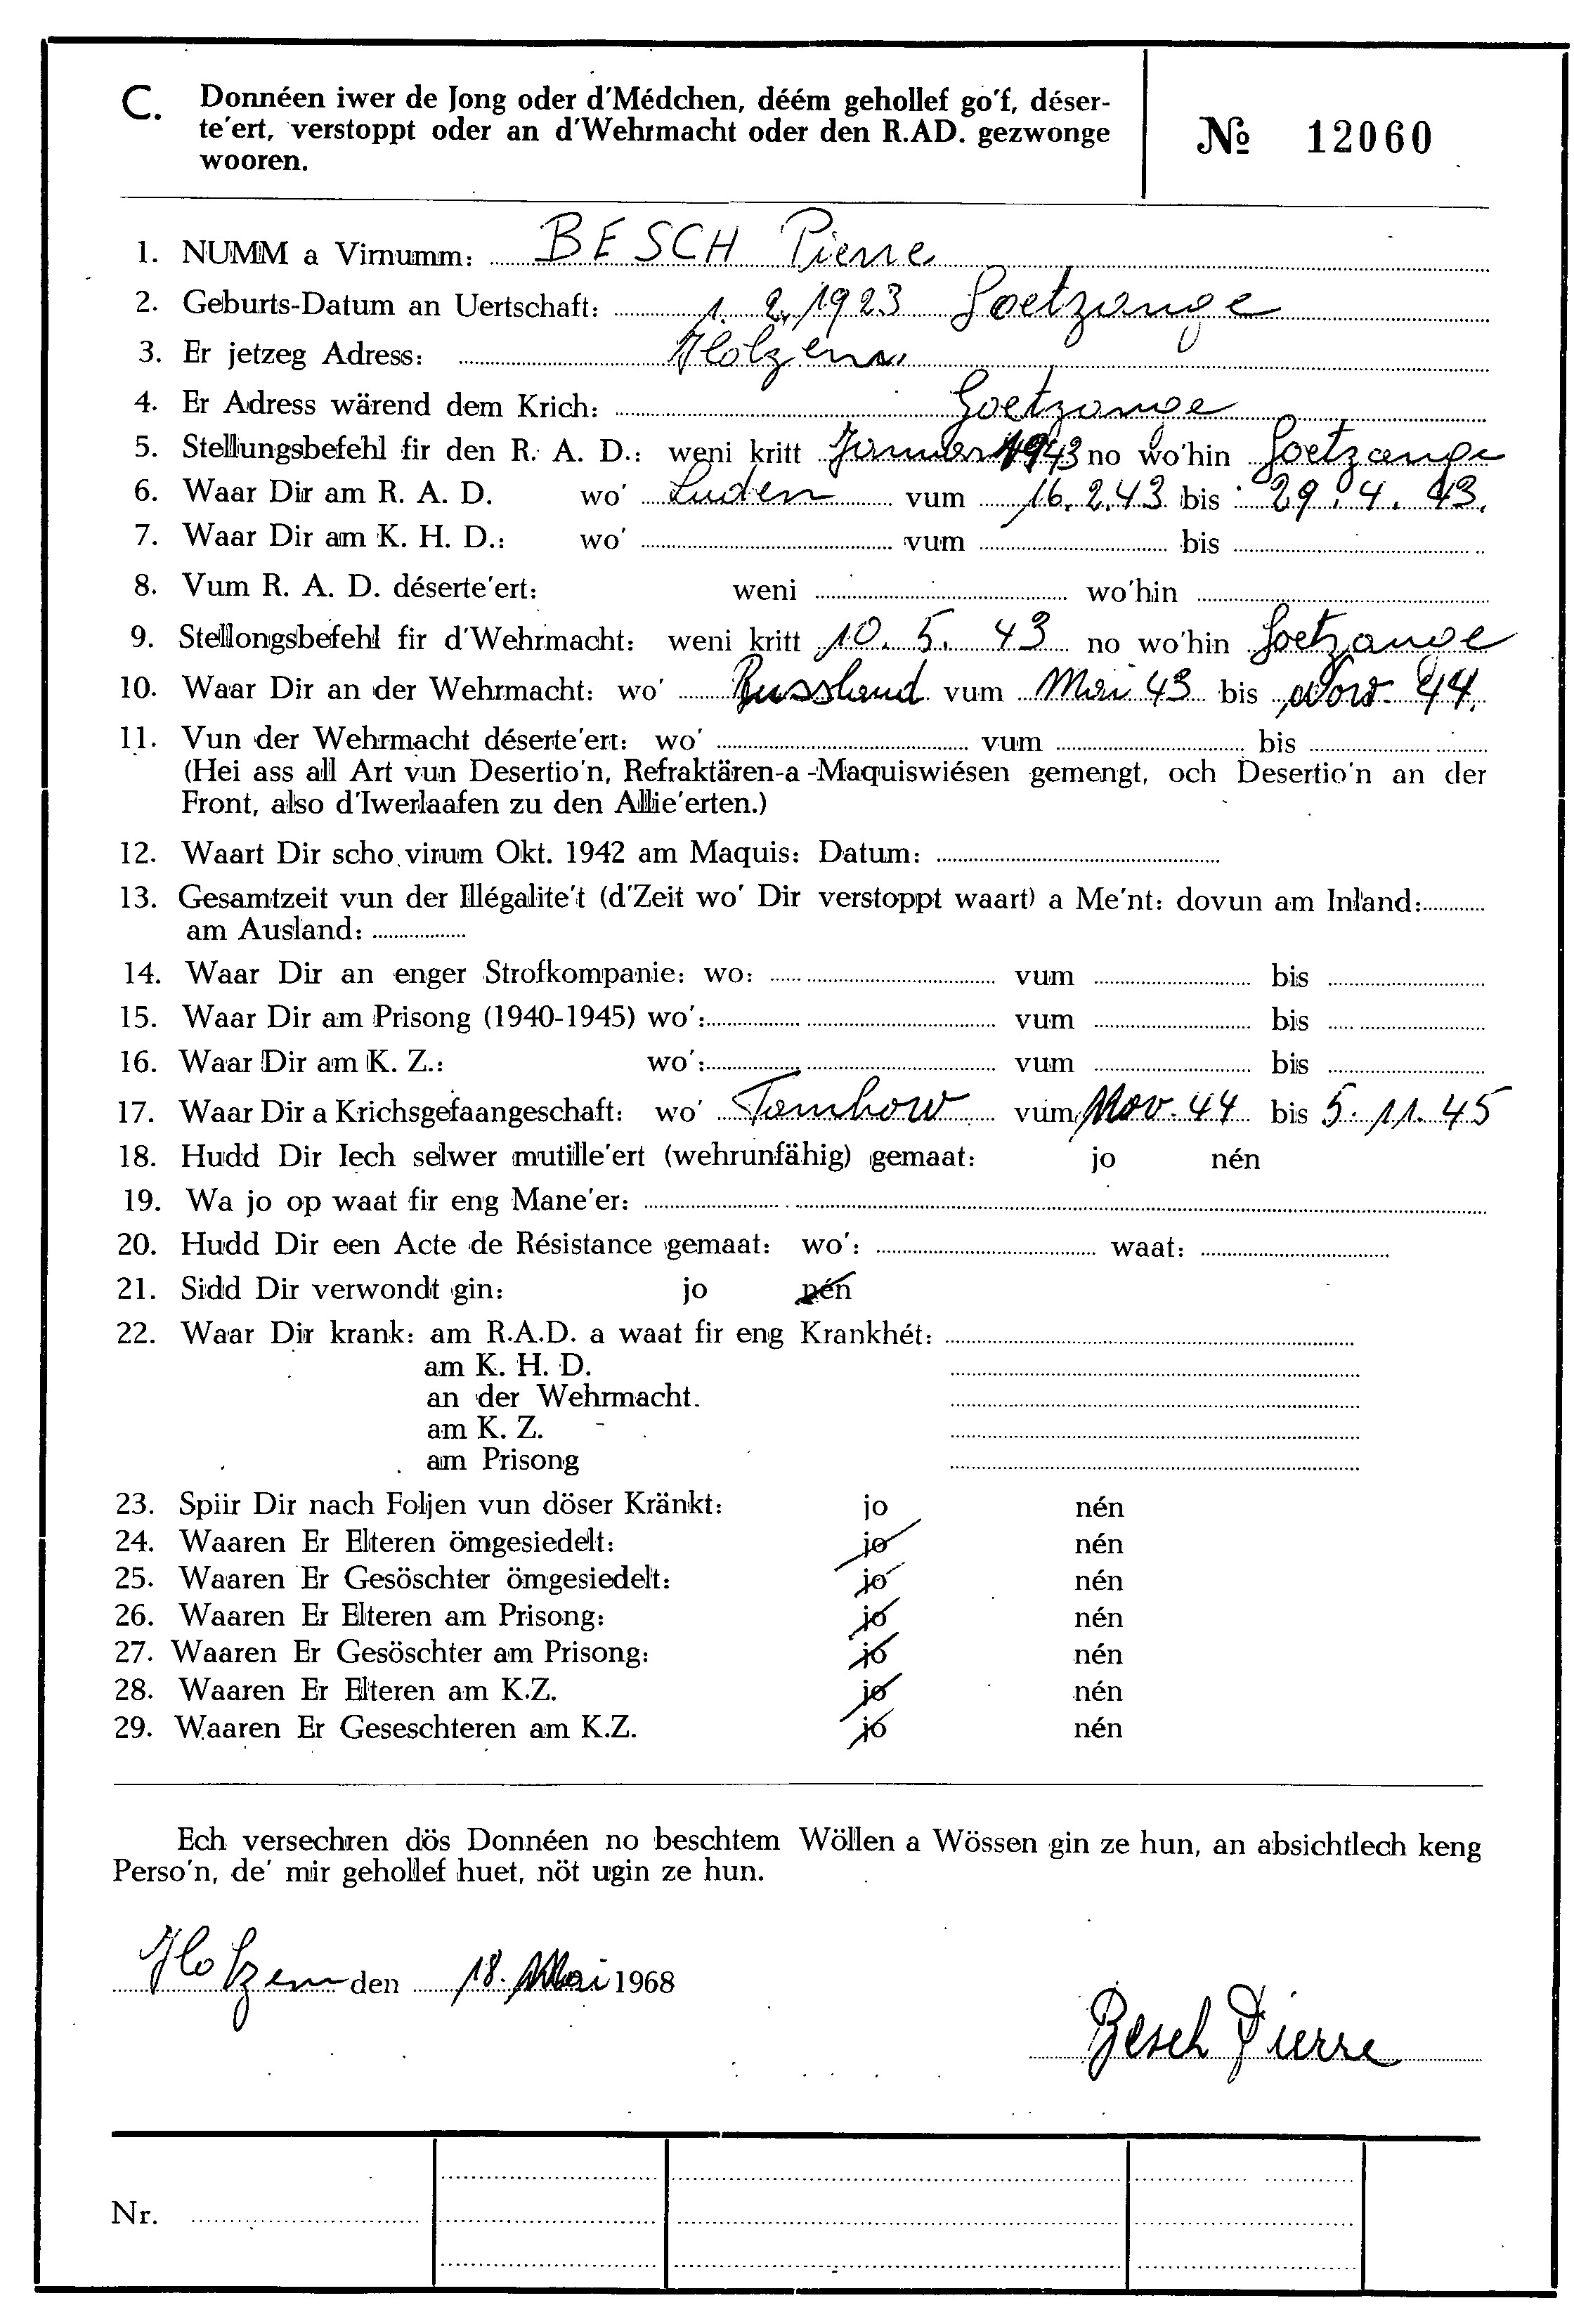 C. Donnéen iwer de Jong oder d'Médchen, déém gehollef go'f, déser-
te'ert, verstoppt oder an d'Wehrmacht oder den R.AD. gezwonge
wooren.
№ 12060
1. NUMM a Virnumm: BESCH Pierre
2. Geburts-Datum an Uertschaft: 1. 2. 1923 Goetzange
3. Er jetzeg Adress: Holzem
4. Er Adress wärend dem Krich: Goetzange
5. Stellungsbefehl fir den R. A. D.: weni kritt Januar 1943 no wo'hin Goetzange
6. Waar Dir am R. A. D. wo' Luden vum 16.2.43 bis 29.4.43.
7. Waar Dir am K. H. D.: wo' vum bis
8. Vum R. A. D. déserte'ert: weni wo'hin
9. Stellongsbefehl fir d'Wehrmacht: weni kritt 10. 5. 43 no wo'hin Goetzange
10. Waar Dir an der Wehrmacht: wo' Russland vum Mai 43 bis Nov. 44.
11. Vun der Wehrmacht déserte'ert: wo' vum bis
(Hei ass all Art vun Desertio'n, Refraktären-a -Maquiswiésen gemengt, och Desertio'n an der
Front, also d'Iwerlaafen zu den Allie'erten.)
12. Waart Dir scho virum Okt. 1942 am Maquis: Datum:
13. Gesamtzeit vun der Illégalite't (d'Zeit wo' Dir verstoppt waart) a Me'nt: dovun am Inland:
am Ausland:
14. Waar Dir an enger Strofkompanie: wo: vum bis
15. Waar Dir am Prisong (1940-1945) wo': vum bis
16. Waar Dir am K. Z.: wo': vum bis
17. Waar Dir a Krichsgefaangeschaft: wo' Tambow vum Nov. 44 bis 5. 11. 45
18. Hudd Dir Iech selwer mutille'ert (wehrunfähig) gemaat: jo nén
19. Wa jo op waat fir eng Mane'er:
20. Hudd Dir een Acte de Résistance gemaat: wo': waat:
21. Sidd Dir verwondt gin: jo nén
22. Waar Dir krank: am R.A.D. a waat fir eng Krankhét:
am K. H. D.
an der Wehrmacht.
am K. Z.
am Prisong
23. Spiir Dir nach Foljen vun döser Kränkt: jo nén
24. Waaren Er Elteren ömgesiedelt: jo nén
25. Waaren Er Gesöschter ömgesiedelt: jo nén
26. Waaren Er Elteren am Prisong: jo nén
27. Waaren Er Gesöschter am Prisong: jo nén
28. Waaren Er Elteren am K.Z. jo nén
29. Waaren Er Geseschteren am K.Z. jo nén
Ech versechren dös Donnéen no beschtem Wöllen a Wössen gin ze hun, an absichtlech keng
Perso'n, de' mir gehollef huet, nöt ugin ze hun.
Holzem den 18. Mai 1968
Besch Pierre
Nr.